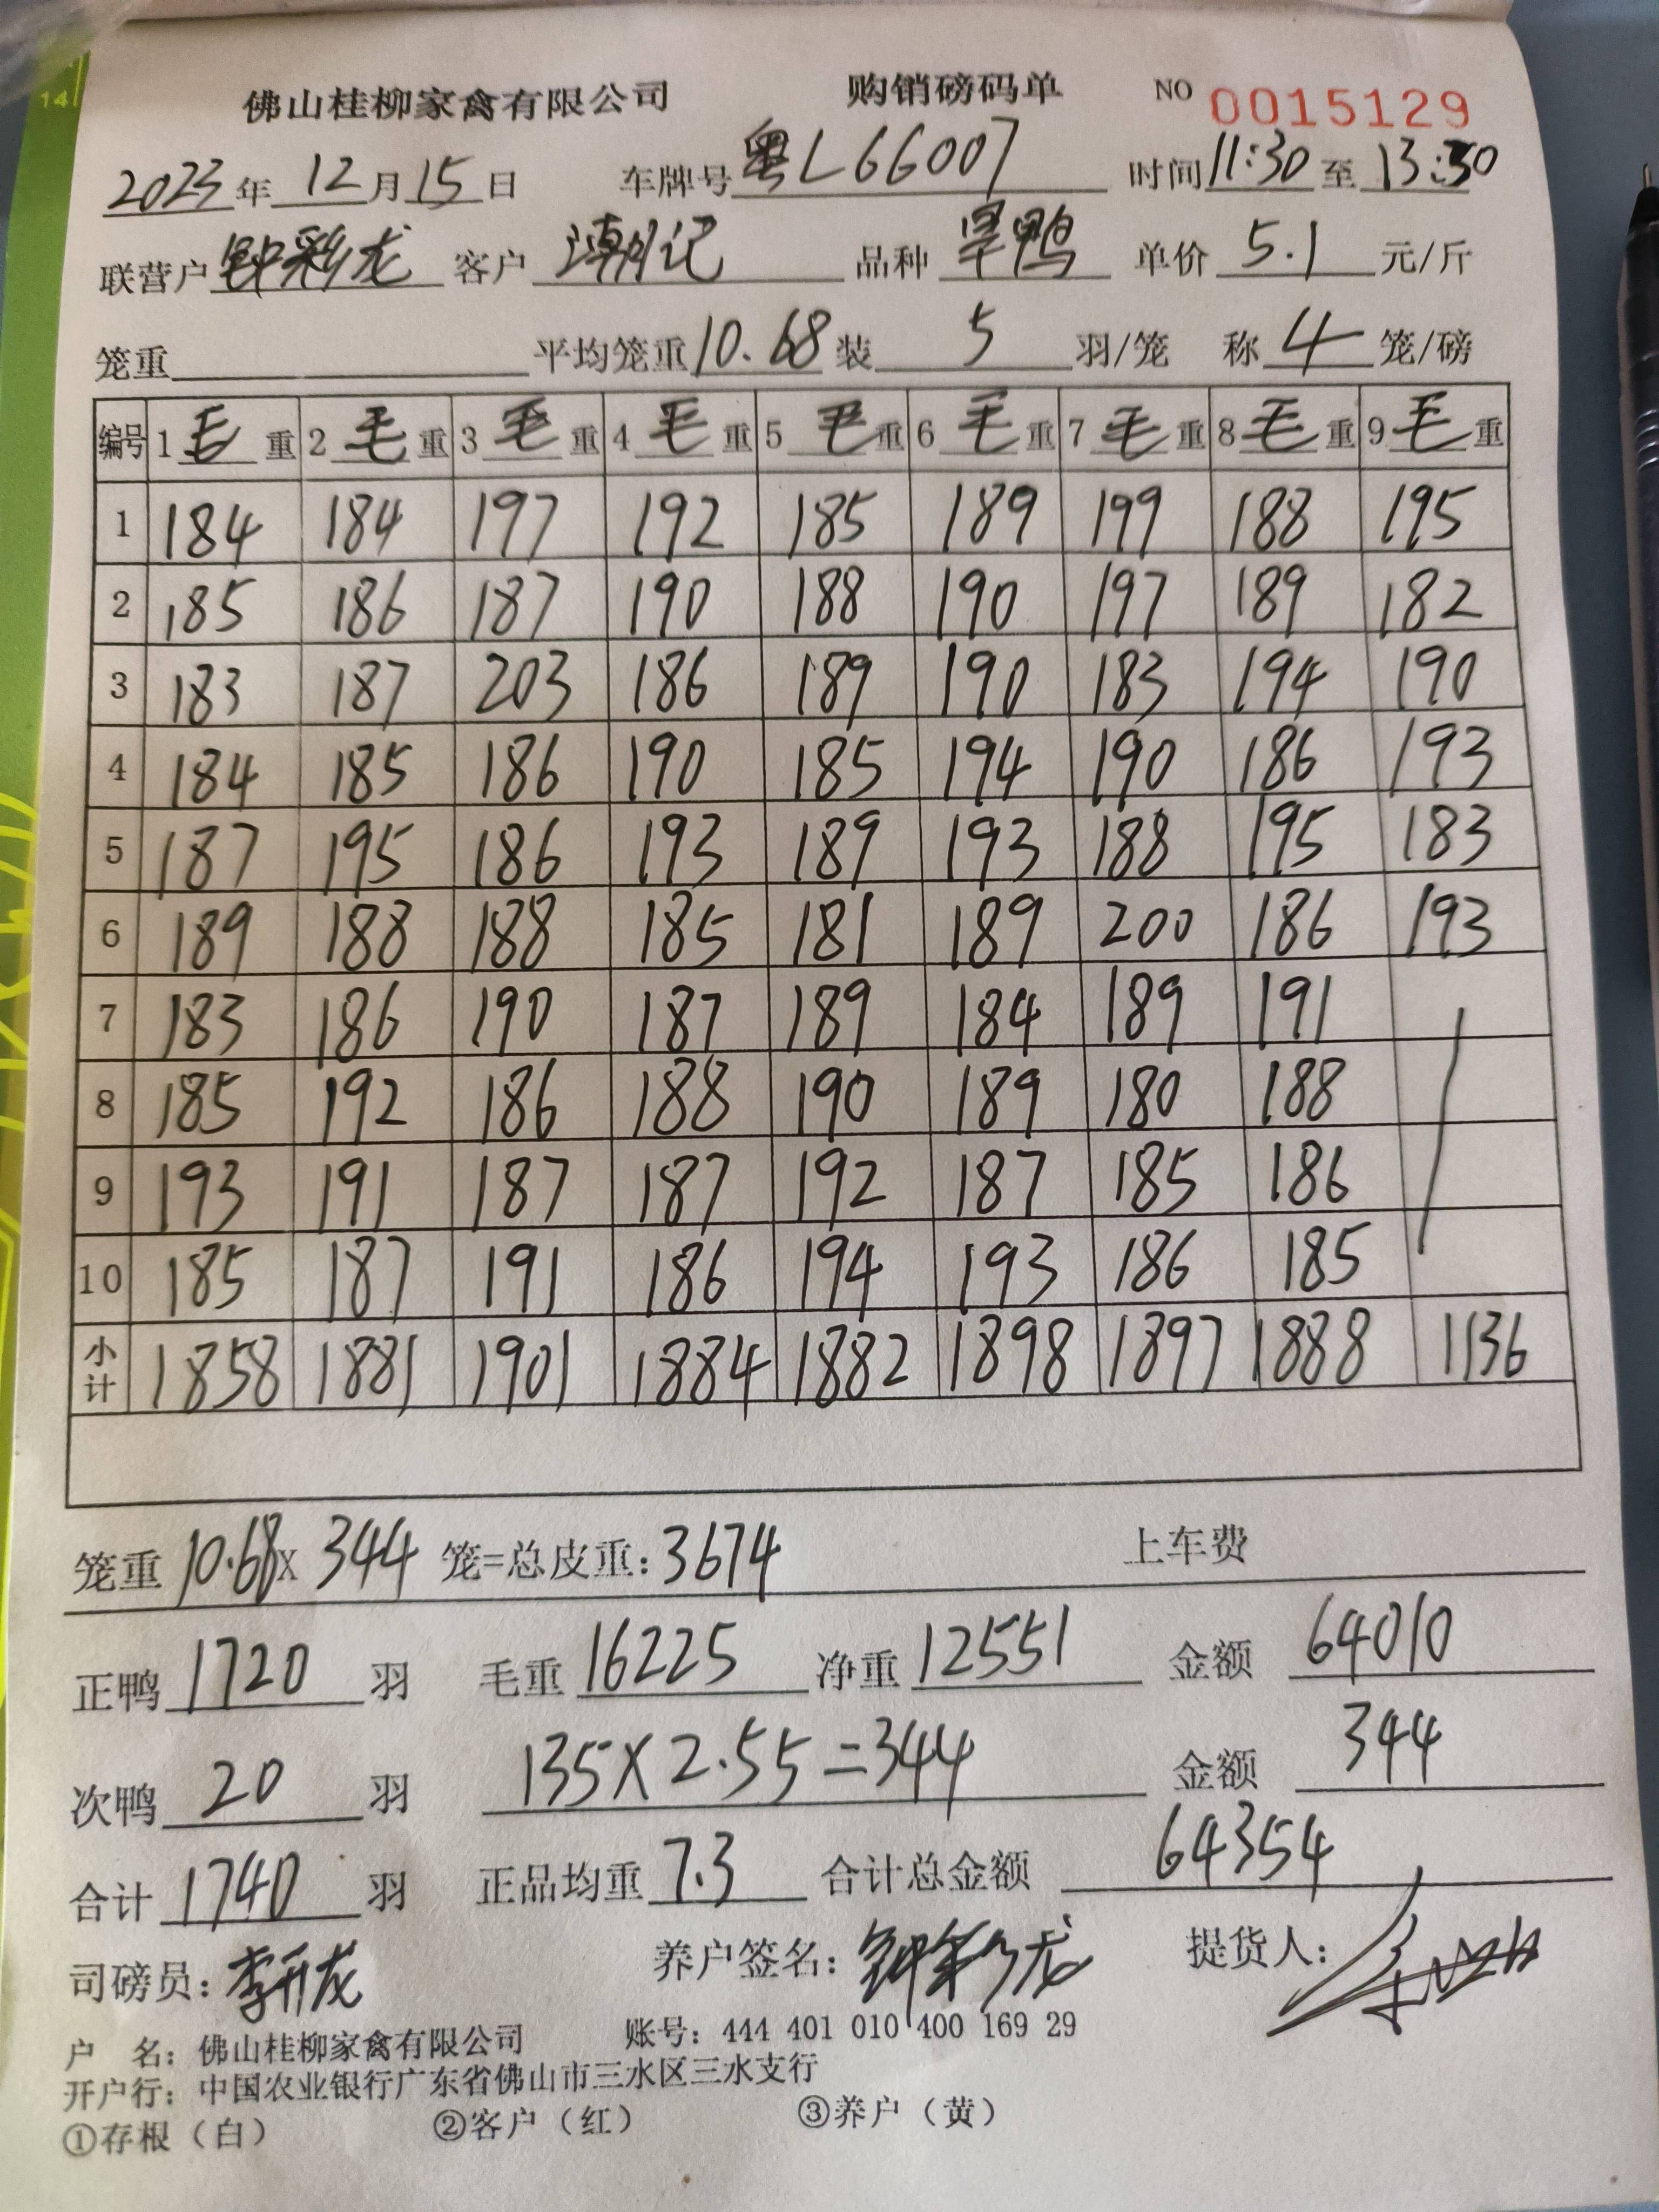 14
佛山桂柳家禽有限公司 购销磅码单 NO 0015129
2023年12月15日 车牌号 粤L66007 时间 11:30 至 13:30
联营户 钟彩龙 客户 潮记 品种 旱鸭 单价 5.1 元/斤
笼重 平均笼重 10.68 装 5 羽/笼 称 4 笼/磅
编号 1 毛 重 2 毛 重 3 毛 重 4 毛 重 5 毛 重 6 毛 重 7 毛 重 8 毛 重 9 毛 重
1 184 184 197 192 185 189 199 188 195
2 185 186 187 190 188 190 197 189 182
3 183 187 203 186 189 190 183 194 190
4 184 185 186 190 185 194 190 186 193
5 187 195 186 193 189 193 188 195 183
6 189 188 188 185 181 189 200 186 193
7 183 186 190 187 189 184 189 191
8 185 192 186 188 190 189 180 188
9 193 191 187 187 192 187 185 186
10 185 187 191 186 194 193 186 185
小计 1858 1881 1901 1884 1882 1898 1897 1888 1136
笼重 10.68 X 344 笼=总皮重: 3674 上车费
正鸭 1720 羽 毛重 16225 净重 12551 金额 64010
次鸭 20 羽 135 X 2.55 = 344 金额 344
合计 1740 羽 正品均重 7.3 合计总金额 64354
司磅员: 李开龙 养户签名: 钟彩龙 提货人:
户 名: 佛山桂柳家禽有限公司 账号: 444 401 010 400 169 29
开户行: 中国农业银行广东省佛山市三水区三水支行
①存根（白） ②客户（红） ③养户（黄）